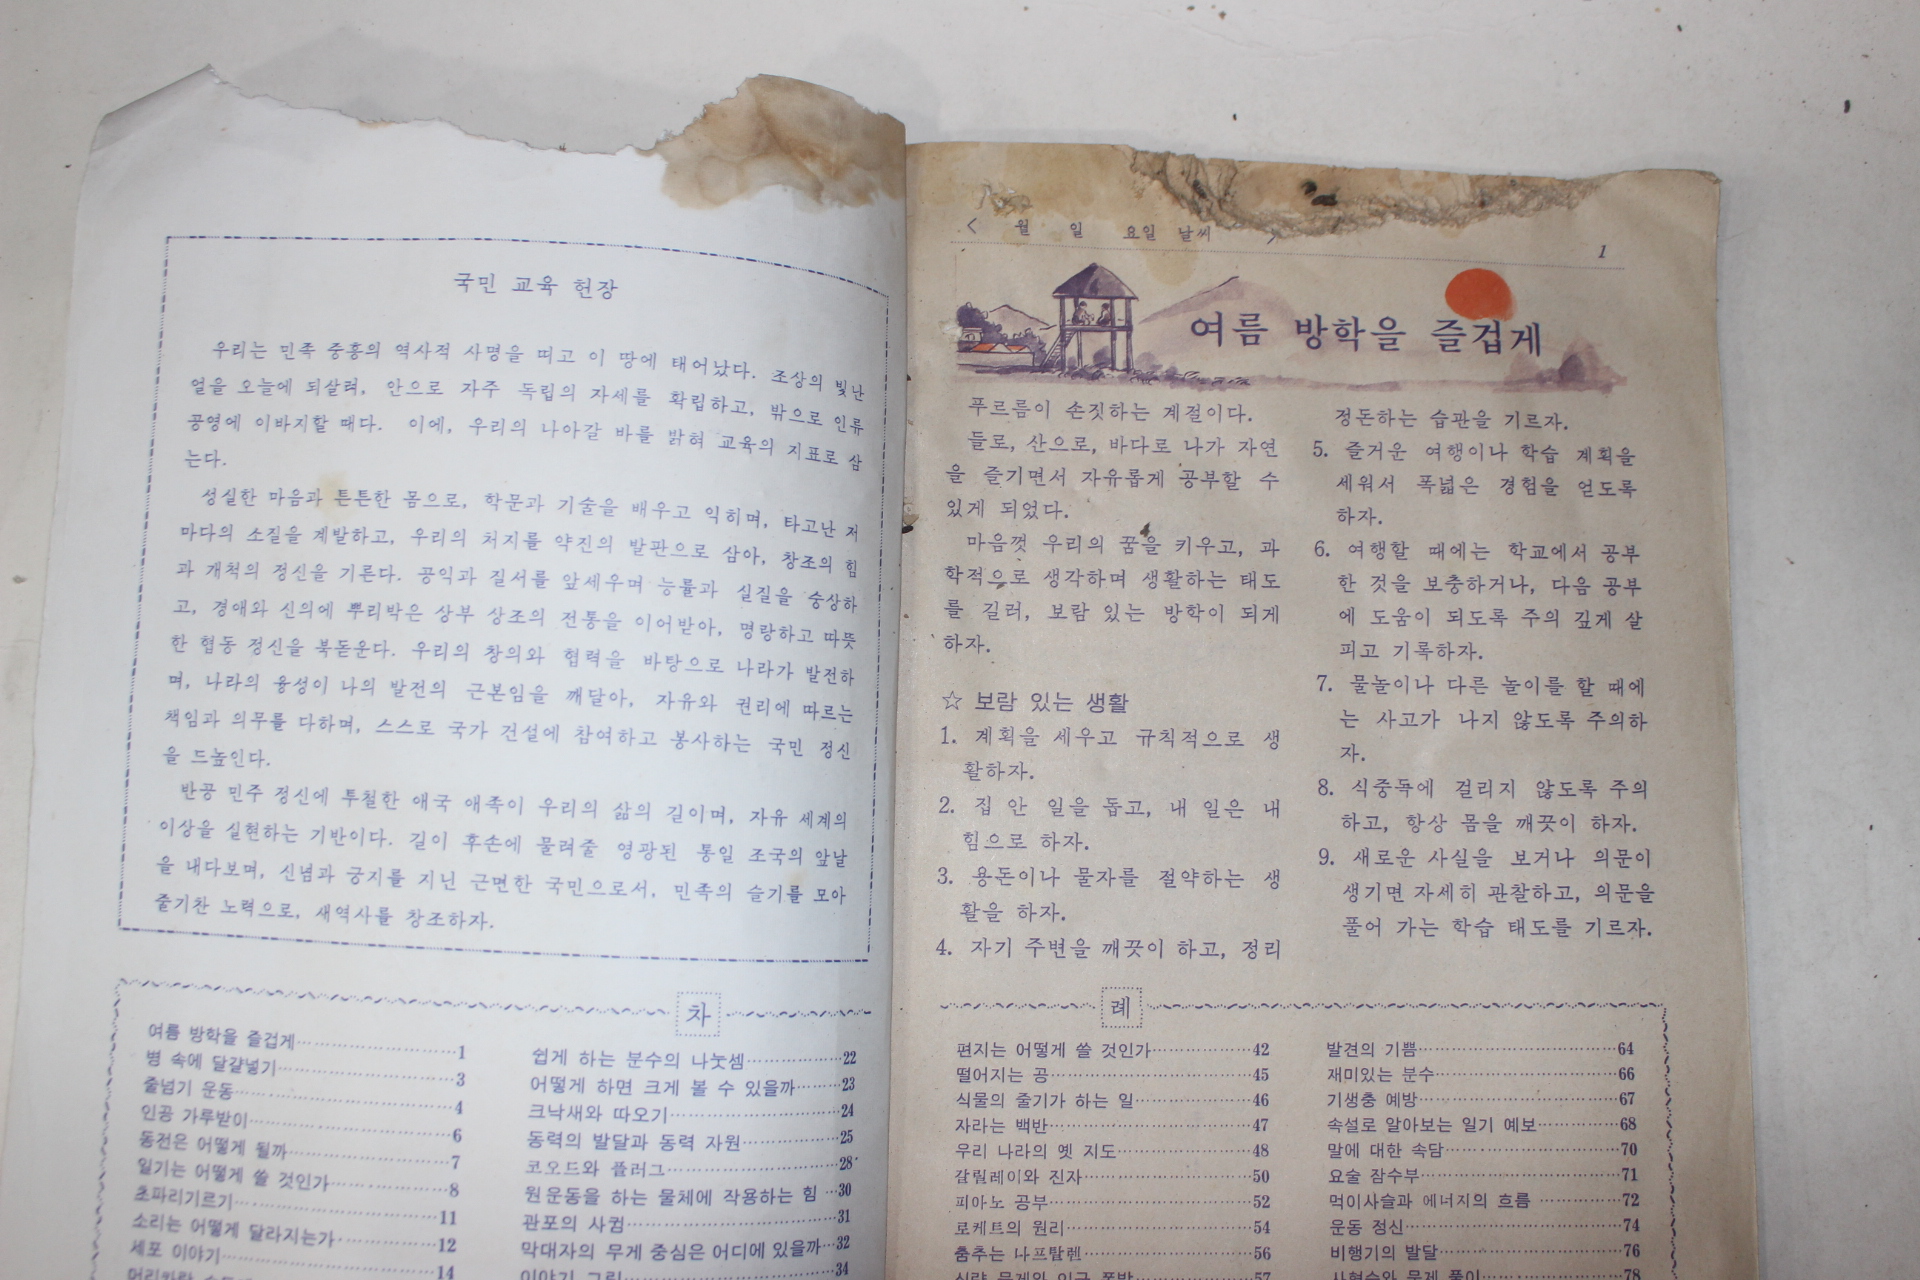 국민 교육 헌장
우리는 민족 중흥의 역사적 사명을 띠고 이 땅에 태어났다. 조상의 빛난
얼을 오늘에 되살려, 안으로 자주 독립의 자세를 확립하고, 밖으로 인류
공영에 이바지할 때다. 이에, 우리의 나아갈 바를 밝혀 교육의 지표로 삼
는다.
성실한 마음과 튼튼한 몸으로, 학문과 기술을 배우고 익히며, 타고난 저
마다의 소질을 계발하고, 우리의 처지를 약진의 발판으로 삼아, 창조의 힘
과 개척의 정신을 기른다. 공익과 질서를 앞세우며 능률과 실질을 숭상하
고, 경애와 신의에 뿌리박은 상부 상조의 전통을 이어받아, 명랑하고 따뜻
한 협동 정신을 북돋운다. 우리의 창의와 협력을 바탕으로 나라가 발전하
며, 나라의 융성이 나의 발전의 근본임을 깨달아, 자유와 권리에 따르는
책임과 의무를 다하며, 스스로 국가 건설에 참여하고 봉사하는 국민 정신
을 드높인다.
반공 민주 정신에 투철한 애국 애족이 우리의 삶의 길이며, 자유 세계의
이상을 실현하는 기반이다. 길이 후손에 물려줄 영광된 통일 조국의 앞날
을 내다보며, 신념과 긍지를 지닌 근면한 국민으로서, 민족의 슬기를 모아
줄기찬 노력으로, 새역사를 창조하자.
차
여름 방학을 즐겁게 1
병 속에 달걀넣기 3
줄넘기 운동 4
인공 가루받이 6
동전은 어떻게 될까 7
일기는 어떻게 쓸 것인가 8
초파리기르기 11
소리는 어떻게 달라지는가 12
세포 이야기 14
쉽게 하는 분수의 나눗셈 22
어떻게 하면 크게 볼 수 있을까 23
크낙새와 따오기 24
동력의 발달과 동력 자원 25
코오드와 플러그 28
원운동을 하는 물체에 작용하는 힘 30
관포의 사귐 31
막대자의 무게 중심은 어디에 있을까 32
이야기 그림 34
< 월 일 요일 날씨 >
1
여름 방학을 즐겁게
푸르름이 손짓하는 계절이다.
들로, 산으로, 바다로 나가 자연
을 즐기면서 자유롭게 공부할 수
있게 되었다.
마음껏 우리의 꿈을 키우고, 과
학적으로 생각하며 생활하는 태도
를 길러, 보람 있는 방학이 되게
하자.
☆ 보람 있는 생활
1. 계획을 세우고 규칙적으로 생
활하자.
2. 집 안 일을 돕고, 내 일은 내
힘으로 하자.
3. 용돈이나 물자를 절약하는 생
활을 하자.
4. 자기 주변을 깨끗이 하고, 정리
정돈하는 습관을 기르자.
5. 즐거운 여행이나 학습 계획을
세워서 폭넓은 경험을 얻도록
하자.
6. 여행할 때에는 학교에서 공부
한 것을 보충하거나, 다음 공부
에 도움이 되도록 주의 깊게 살
피고 기록하자.
7. 물놀이나 다른 놀이를 할 때에
는 사고가 나지 않도록 주의하
자.
8. 식중독에 걸리지 않도록 주의
하고, 항상 몸을 깨끗이 하자.
9. 새로운 사실을 보거나 의문이
생기면 자세히 관찰하고, 의문을
풀어 가는 학습 태도를 기르자.
례
편지는 어떻게 쓸 것인가 42
떨어지는 공 45
식물의 줄기가 하는 일 46
자라는 백반 47
우리 나라의 옛 지도 48
갈릴레이와 진자 50
피아노 공부 52
로케트의 원리 54
춤추는 나프탈렌 56
57
발견의 기쁨 64
재미있는 분수 66
기생충 예방 67
속설로 알아보는 일기 예보 68
말에 대한 속담 70
요술 잠수부 71
먹이사슬과 에너지의 흐름 72
운동 정신 74
비행기의 발달 76
78